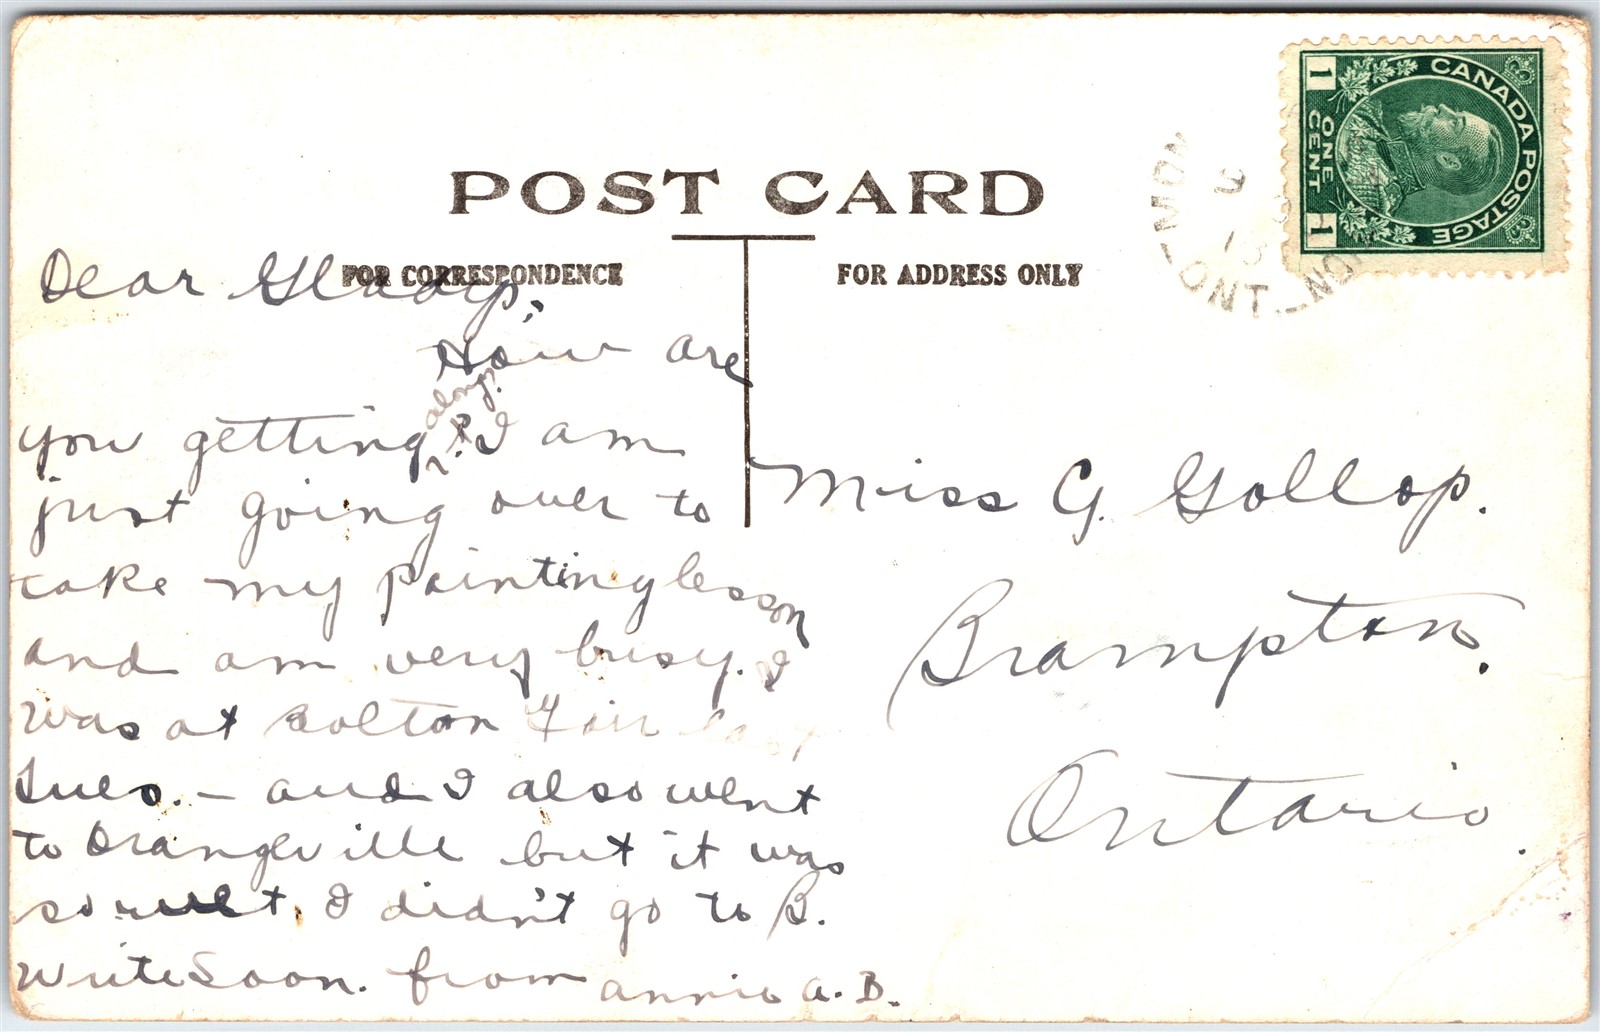 POST CARD
FOR CORRESPONDENCE
FOR ADDRESS ONLY
CANADA POSTAGE
1 ONE CENT 1
MON
13
ONT.
Dear Gladys;
How are
you getting along? I am
just going over to
take my painting lesson
and am very busy. I
was at Bolton Fair last
Tues. – and I also went
to Orangeville but it was
so wet, I didn't go to B.
Write Soon. from Annie A. B.
Miss G. Gollop.
Brampton.
Ontario.